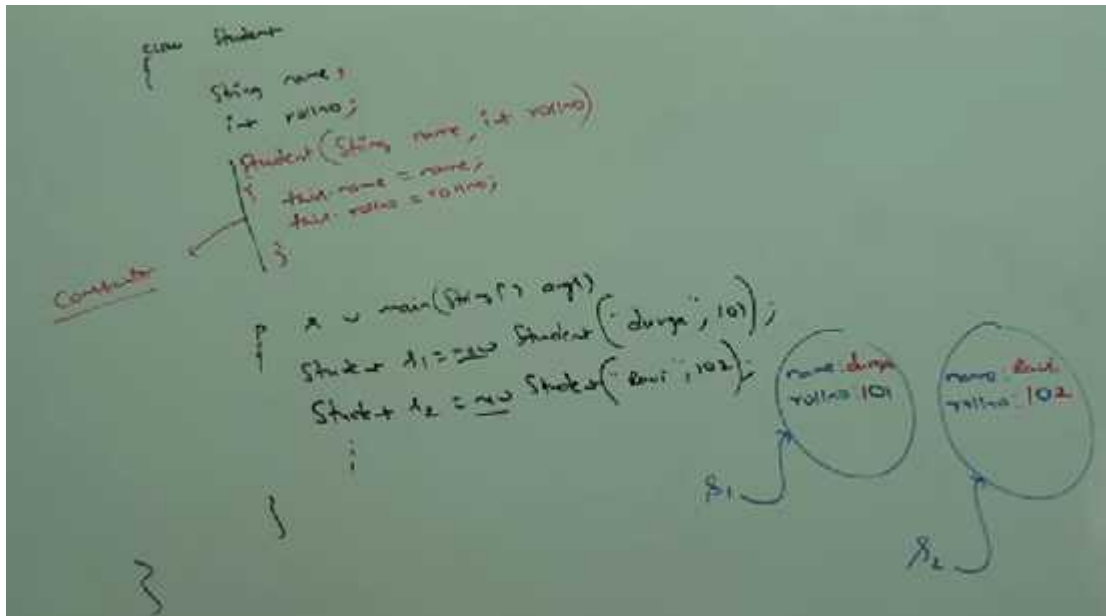 class Student
{
String name;
int rollno;
Student(String name, int rollno)
{
this.name = name;
this.rollno = rollno;
}
Constructor
p s v main(String[] args)
{
Student s1 = new Student("durga", 101);
Student s2 = new Student("Ravi", 102);
;
}
}
name: durga
rollno: 101
name: Ravi
rollno: 102
s1
s2